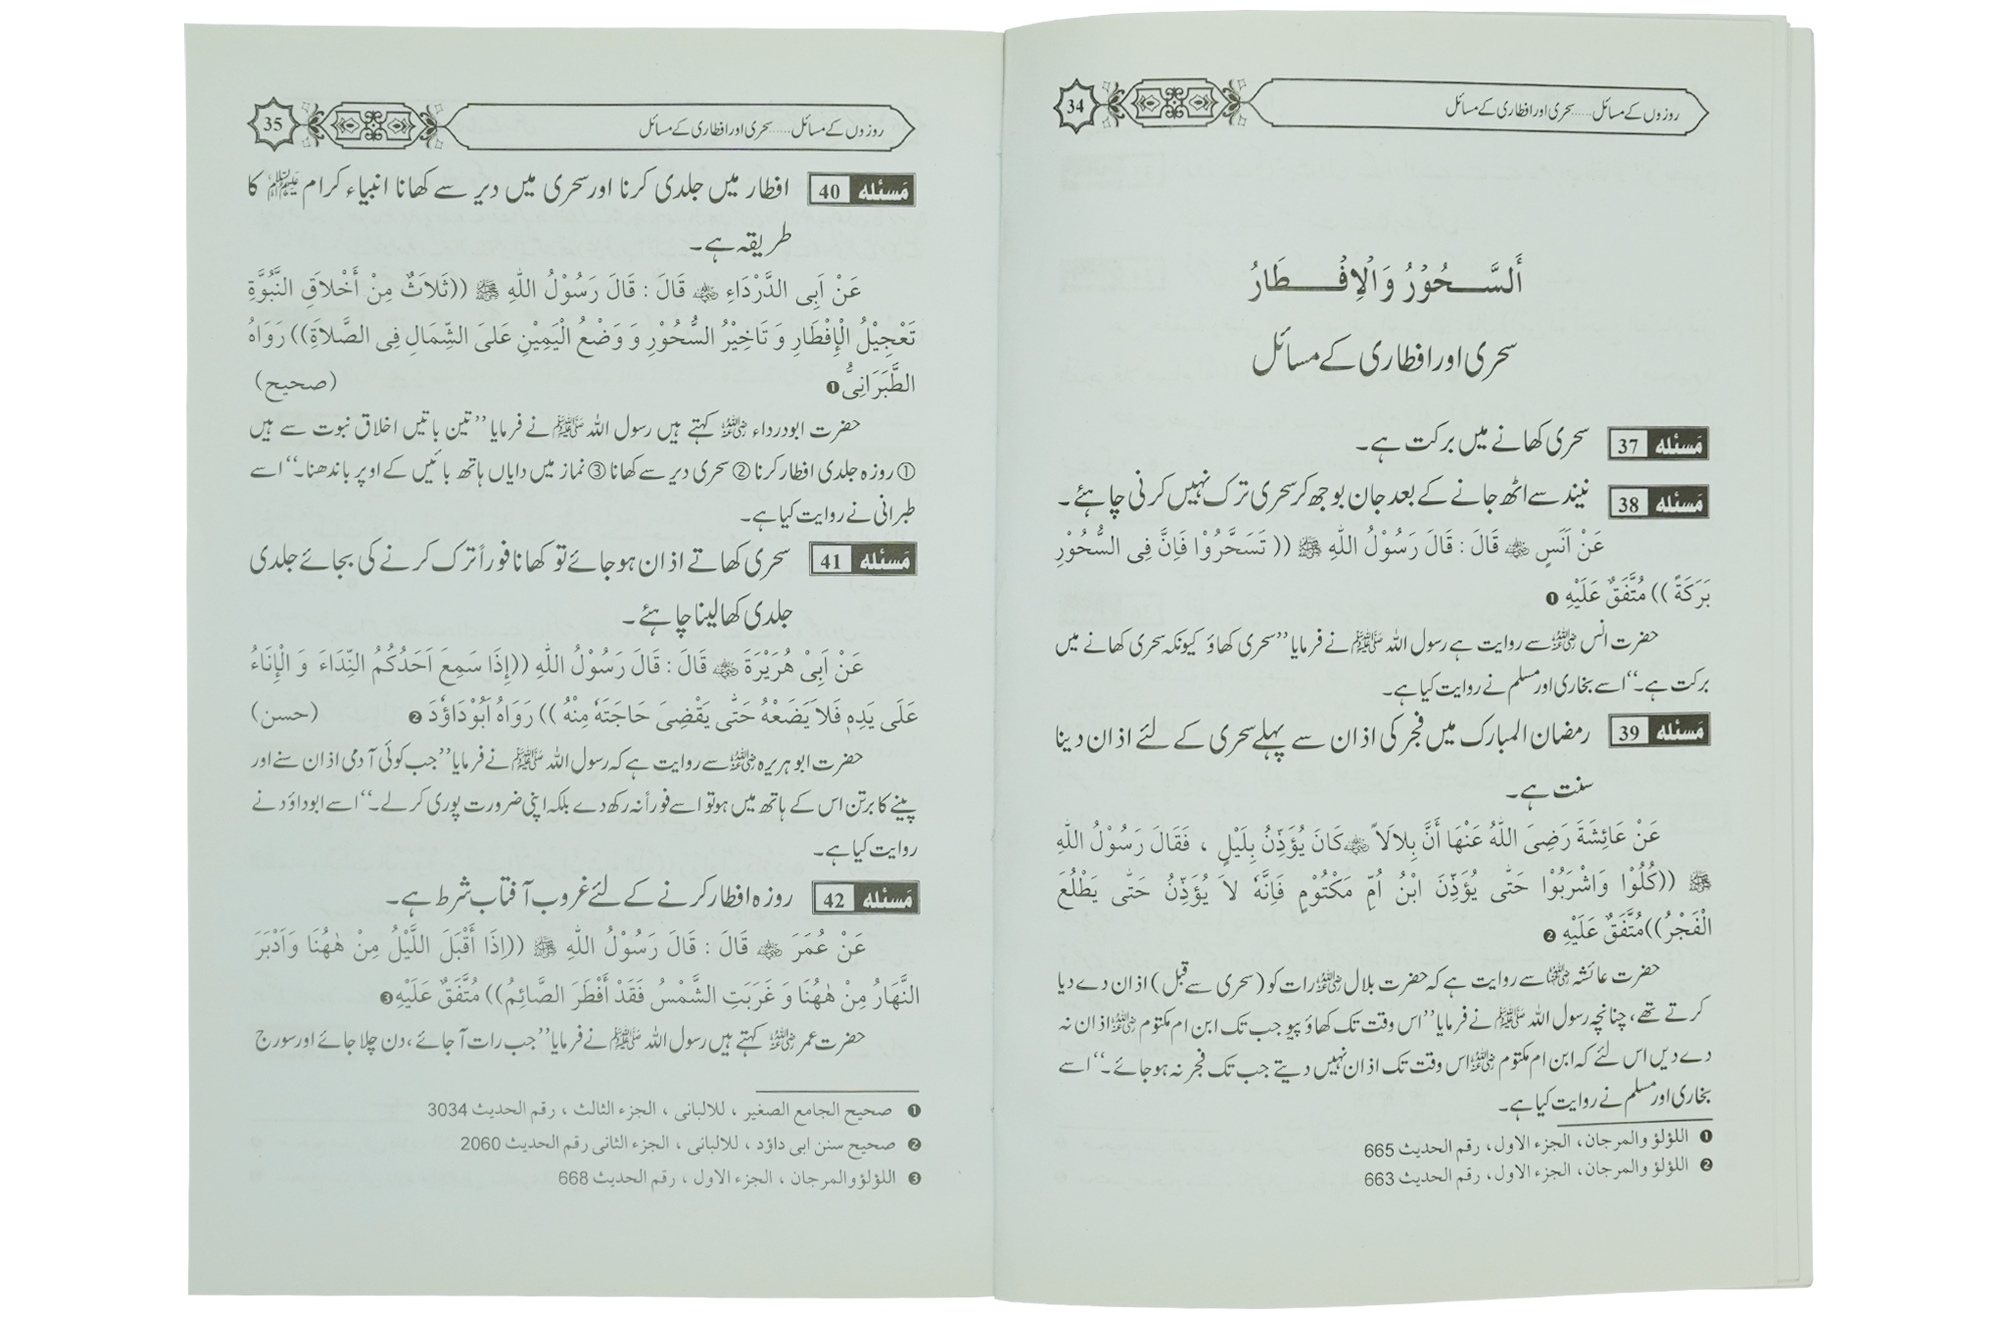 روزوں کے مسائل ..... سحری اور افطاری کے مسائل 34
أَلسَّـحُوْرُ وَالْاِفْـطَارُ
سحری اور افطاری کے مسائل
مَسئله 37 سحری کھانے میں برکت ہے۔
مَسئله 38 نیند سے اٹھ جانے کے بعد جان بوجھ کر سحری ترک نہیں کرنی چاہئے۔
عَنْ اَنَسٍ ﷺ قَالَ : قَالَ رَسُوْلُ اللهِ ﷺ (( تَسَحَّرُوْا فَاِنَّ فِی السُّحُوْرِ
بَرَكَةً )) مُتَّفَقٌ عَلَيْهِ ❶
حضرت انس رضی اللہ عنہ سے روایت ہے رسول اللہ ﷺ نے فرمایا ’’سحری کھاؤ کیونکہ سحری کھانے میں
برکت ہے۔‘‘ اسے بخاری اور مسلم نے روایت کیا ہے۔
مَسئله 39 رمضان المبارک میں فجر کی اذان سے پہلے سحری کے لئے اذان دینا
سنت ہے۔
عَنْ عَائِشَةَ رَضِیَ اللهُ عَنْهَا أَنَّ بِلاَلاً رضی اللہ عنہ كَانَ يُؤَذِّنُ بِلَيْلٍ ، فَقَالَ رَسُوْلُ اللهِ
ﷺ ((كُلُوْا وَاشْرَبُوْا حَتّٰى يُؤَذِّنَ ابْنُ اُمِّ مَكْتُوْمٍ فَاِنَّهٗ لاَ يُؤَذِّنُ حَتّٰى يَطْلُعَ
الْفَجْرُ))مُتَّفَقٌ عَلَيْهِ ❷
حضرت عائشہ رضی اللہ عنہا سے روایت ہے کہ حضرت بلال رضی اللہ عنہ رات کو (سحری سے قبل) اذان دے دیا
کرتے تھے، چنانچہ رسول اللہ ﷺ نے فرمایا ’’اس وقت تک کھاؤ پیو جب تک ابن ام مکتوم رضی اللہ عنہ اذان نہ
دے دیں اس لئے کہ ابن ام مکتوم رضی اللہ عنہ اس وقت تک اذان نہیں دیتے جب تک فجر نہ ہو جائے۔‘‘ اسے
بخاری اور مسلم نے روایت کیا ہے۔
❶ اللؤلؤ والمرجان، الجزء الاول، رقم الحديث 665
❷ اللؤلؤ والمرجان، الجزء الاول، رقم الحديث 663
روزوں کے مسائل ..... سحری اور افطاری کے مسائل 35
مَسئله 40 افطار میں جلدی کرنا اور سحری میں دیر سے کھانا انبیاء کرام علیہم السلام کا
طریقہ ہے۔
عَنْ اَبِی الدَّرْدَاءِ رضی اللہ عنہ قَالَ : قَالَ رَسُوْلُ اللهِ ﷺ ((ثَلاَثٌ مِنْ أَخْلاَقِ النُّبُوَّةِ
تَعْجِيْلُ الْإِفْطَارِ وَ تَاخِيْرُ السُّحُوْرِ وَ وَضْعُ الْيَمِيْنِ عَلَى الشِّمَالِ فِی الصَّلاَةِ)) رَوَاهُ
الطَّبَرَانِیُّ ❶ (صحيح)
حضرت ابودرداء رضی اللہ عنہ کہتے ہیں رسول اللہ ﷺ نے فرمایا ’’تین باتیں اخلاق نبوت سے ہیں
① روزہ جلدی افطار کرنا ② سحری دیر سے کھانا ③ نماز میں دایاں ہاتھ بائیں کے اوپر باندھنا۔‘‘ اسے
طبرانی نے روایت کیا ہے۔
مَسئله 41 سحری کھاتے اذان ہو جائے تو کھانا فوراً ترک کرنے کی بجائے جلدی
جلدی کھا لینا چاہئے۔
عَنْ اَبِیْ هُرَيْرَةَ رضی اللہ عنہ قَالَ : قَالَ رَسُوْلُ اللهِ ((إِذَا سَمِعَ اَحَدُكُمُ النِّدَاءَ وَ الْإِنَاءُ
عَلَى يَدِهٖ فَلاَ يَضَعْهُ حَتّٰى يَقْضِیَ حَاجَتَهٗ مِنْهُ )) رَوَاهُ اَبُوْدَاوٗدَ ❷ (حسن)
حضرت ابو ہریرہ رضی اللہ عنہ سے روایت ہے کہ رسول اللہ ﷺ نے فرمایا ’’جب کوئی آدمی اذان سنے اور
پینے کا برتن اس کے ہاتھ میں ہو تو اسے فوراً نہ رکھ دے بلکہ اپنی ضرورت پوری کر لے۔‘‘ اسے ابوداؤد نے
روایت کیا ہے۔
مَسئله 42 روزہ افطار کرنے کے لئے غروب آفتاب شرط ہے۔
عَنْ عُمَرَ رضی اللہ عنہ قَالَ : قَالَ رَسُوْلُ اللهِ ﷺ ((اِذَا أَقْبَلَ اللَّيْلُ مِنْ هٰهُنَا وَاَدْبَرَ
النَّهَارُ مِنْ هٰهُنَا وَ غَرَبَتِ الشَّمْسُ فَقَدْ أَفْطَرَ الصَّائِمُ)) مُتَّفَقٌ عَلَيْهِ ❸
حضرت عمر رضی اللہ عنہ کہتے ہیں رسول اللہ ﷺ نے فرمایا ’’جب رات آ جائے، دن چلا جائے اور سورج
❶ صحيح الجامع الصغير ، للالبانى ، الجزء الثالث ، رقم الحديث 3034
❷ صحيح سنن ابى داؤد ، للالبانى ، الجزء الثانى رقم الحديث 2060
❸ اللؤلؤ والمرجان ، الجزء الاول ، رقم الحديث 668